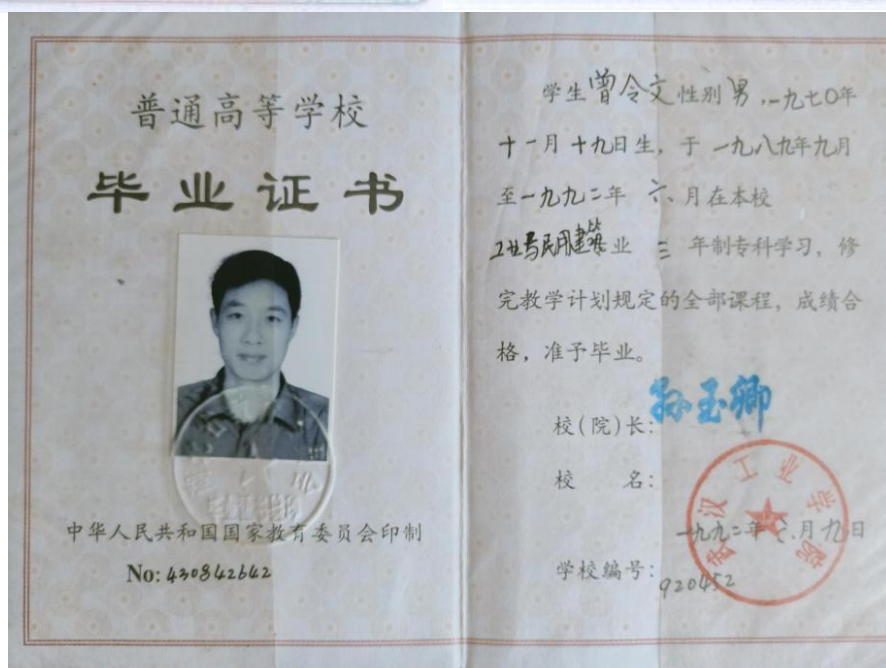 普通高等学校
毕业证书
中华人民共和国国家教育委员会印制
No: 430842642
学生曾令文性别男,一九七〇年
十一月十九日生,于一九八九年九月
至一九九二年六月在本校
工业与民用建筑业三年制专科学习,修
完教学计划规定的全部课程,成绩合
格,准予毕业。
校(院)长:孙玉卿
校 名:
武汉工业学院
一九九二年六月九日
学校编号:920452